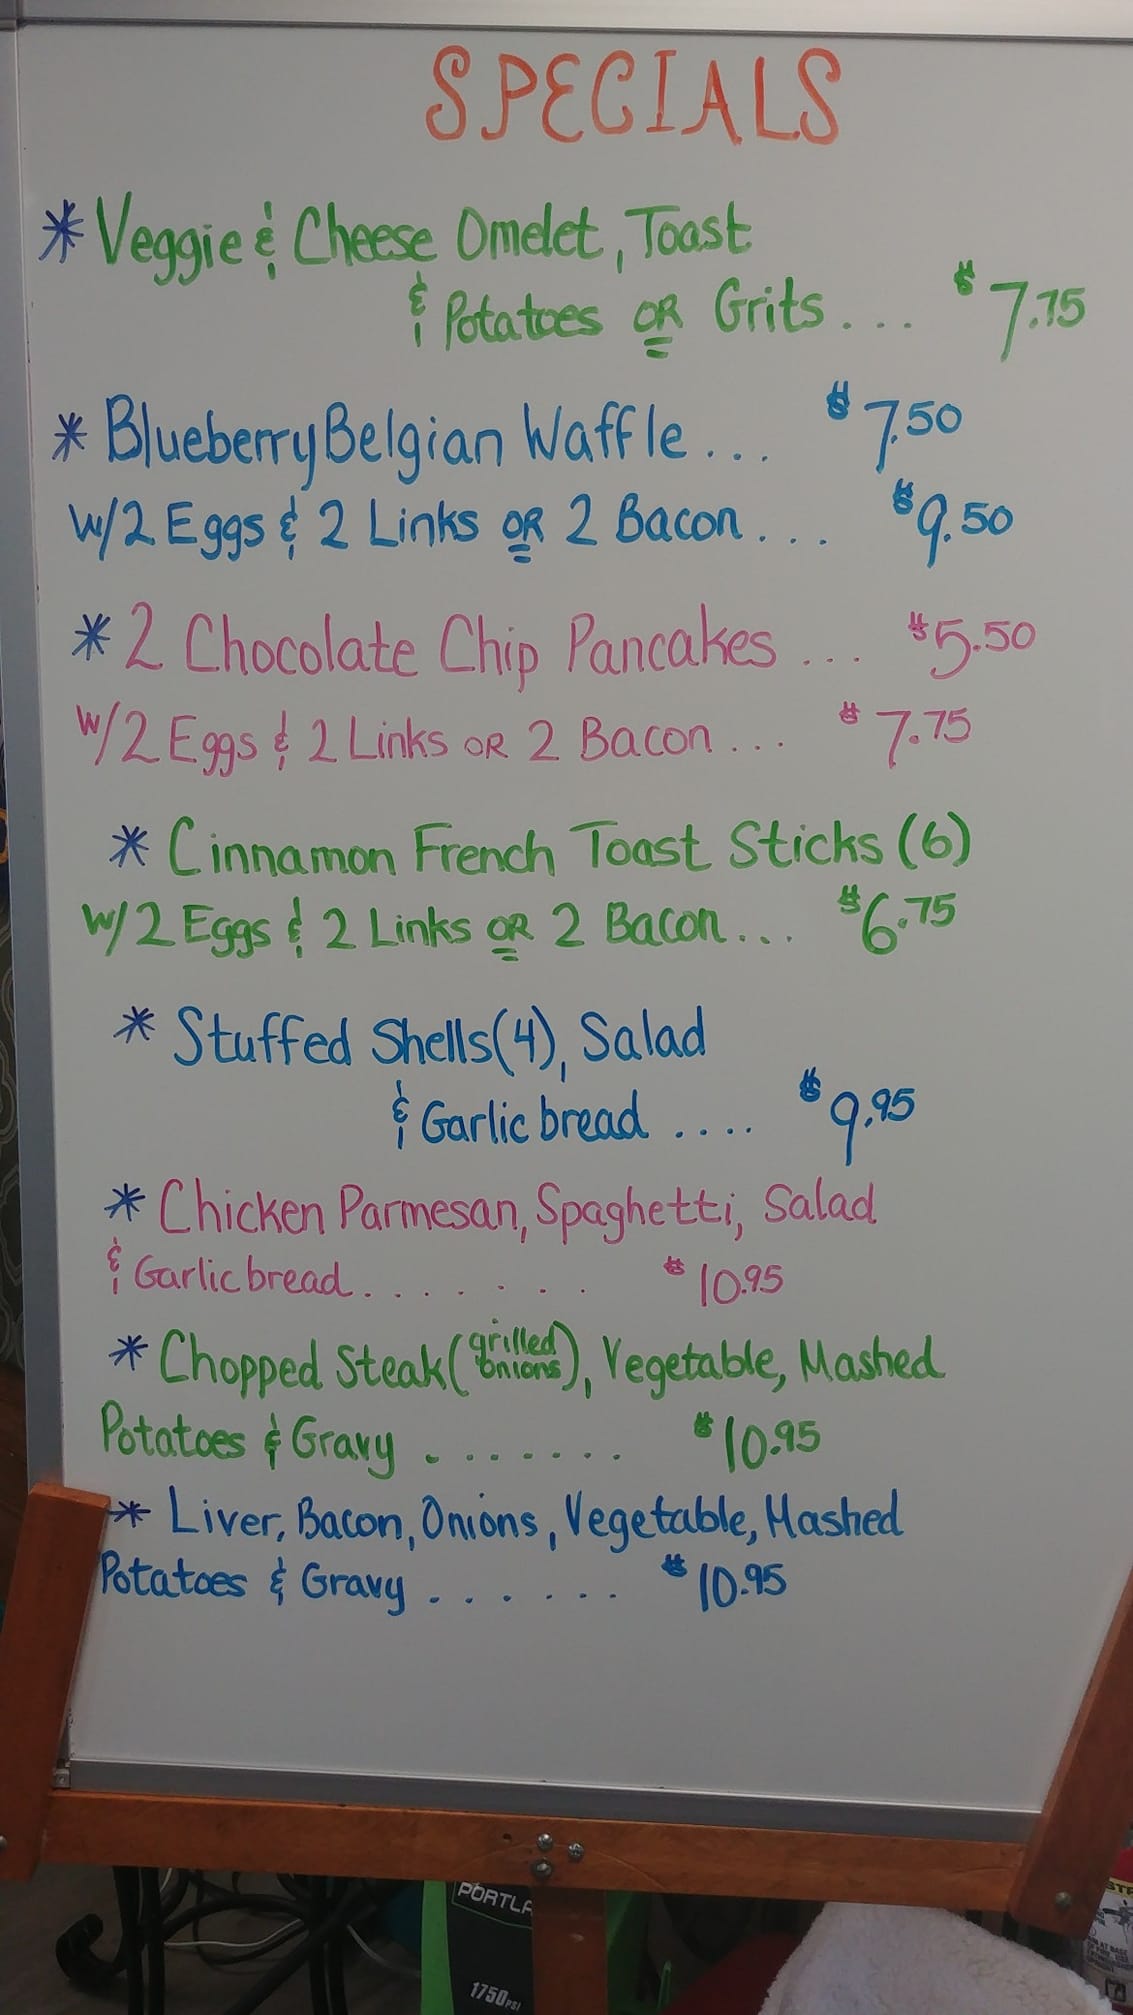 SPECIALS
* Veggie & Cheese Omelet, Toast
& Potatoes OR Grits... $7.75
* Blueberry Belgian Waffle... $7.50
W/2 Eggs & 2 Links OR 2 Bacon... $9.50
* 2 Chocolate Chip Pancakes... $5.50
W/2 Eggs & 2 Links OR 2 Bacon... $7.75
* Cinnamon French Toast Sticks (6)
W/2 Eggs & 2 Links OR 2 Bacon... $6.75
* Stuffed Shells(4), Salad
& Garlic bread.... $9.95
* Chicken Parmesan, Spaghetti, Salad
& Garlic bread....... $10.95
* Chopped Steak(grilled onions), Vegetable, Mashed
Potatoes & Gravy....... $10.95
* Liver, Bacon, Onions, Vegetable, Mashed
Potatoes & Gravy....... $10.95
PORTLA
1750 PSI